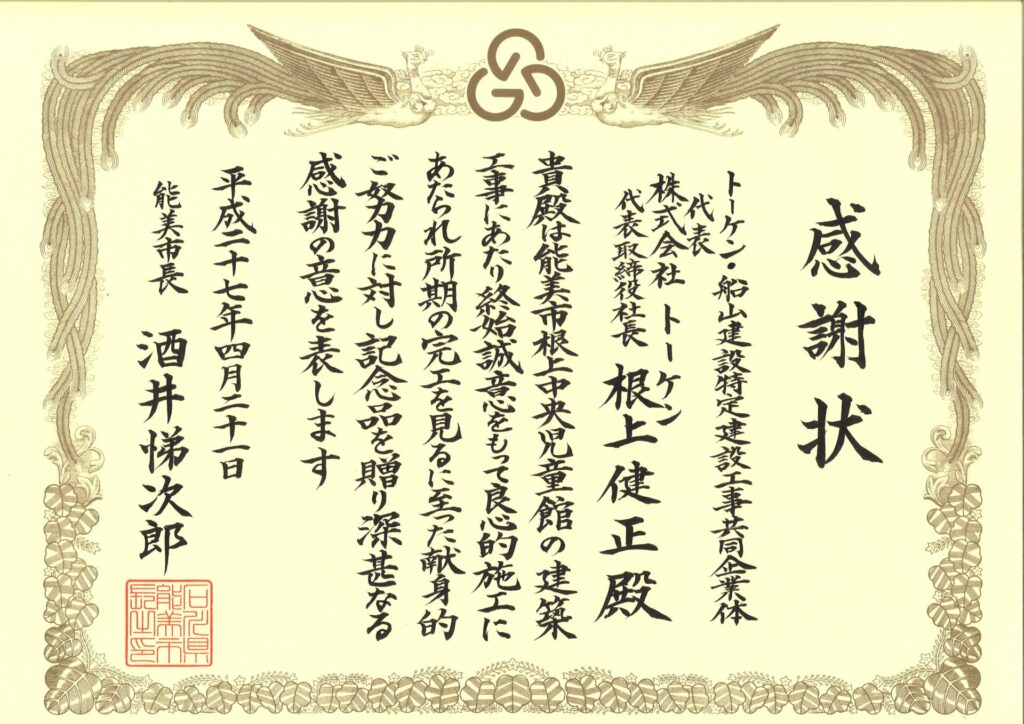 感謝状
トーケン・船山建設特定建設工事共同企業体
代表
株式会社 トーケン
代表取締役社長 根上健正殿
貴殿は能美市根上中央児童館の建築
工事にあたり終始誠意をもって良心的施工に
あたられ所期の完工を見るに至った献身的
ご努力に対し記念品を贈り深甚なる
感謝の意を表します
平成二十七年四月二十一日
能美市長 酒井悌次郎
石川県
能美市
長之印